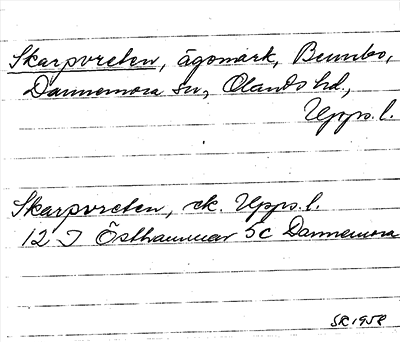 Skarpvreten, ägomark, Bennbo,
Dannemora sn, Olands hd.,
Upps. l.
Skarpvreten, ek. Upps. l.
12 I Östhammar 5c Dannemora
SR 1958